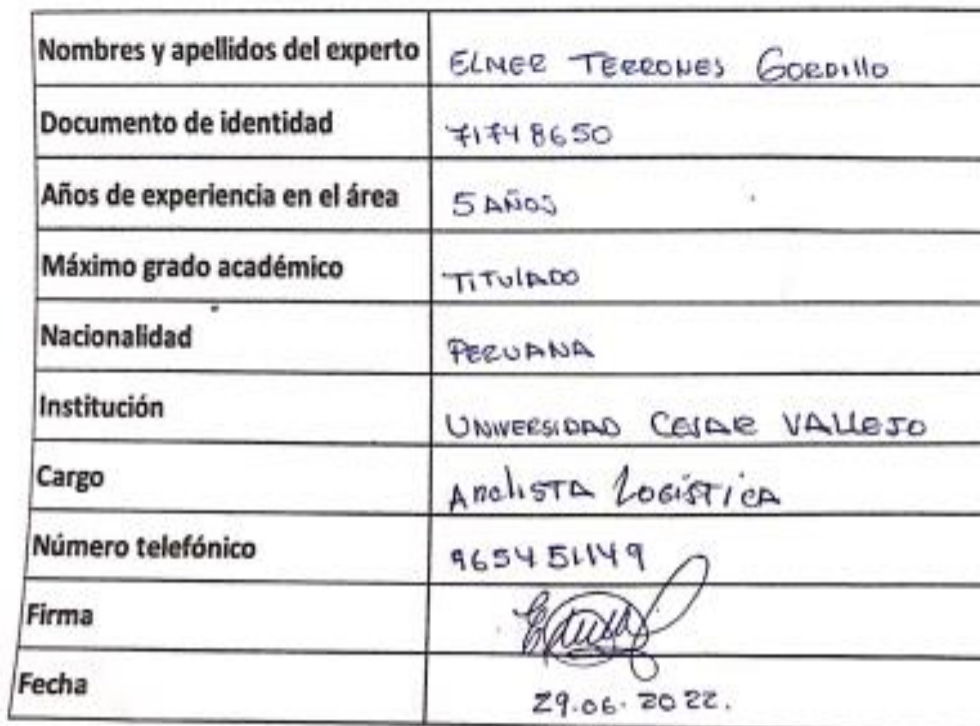 Nombres y apellidos del experto ELMER TERRONES GORDILLO
Documento de identidad 71748650
Años de experiencia en el área 5 AÑOS
Máximo grado académico TITULADO
Nacionalidad PERUANA
Institución UNIVERSIDAD CESAR VALLEJO
Cargo ANALISTA LOGÍSTICA
Número telefónico 965451149
Firma
Fecha 29.06.2022.